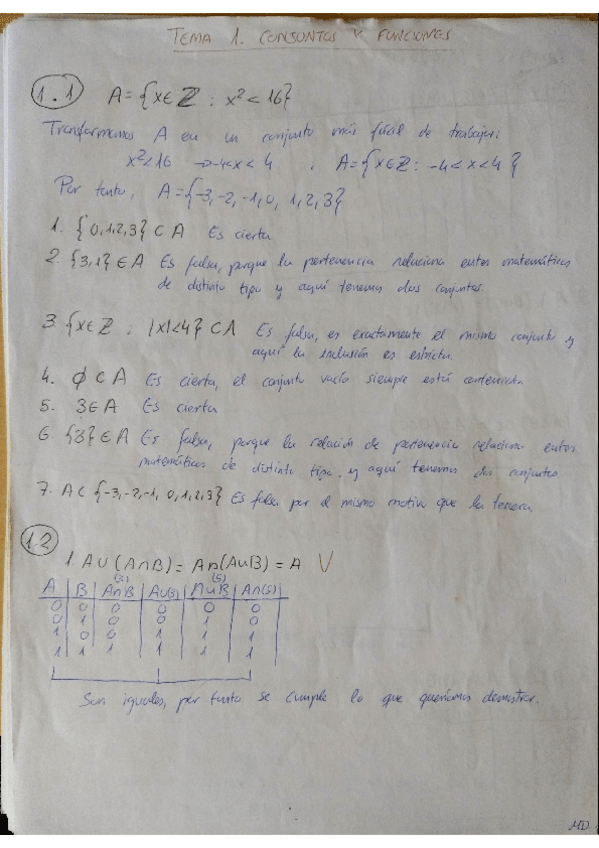 TEMA 1. CONJUNTOS Y FUNCIONES
1.1 A = {x∈ℤ : x² < 16}
Transformamos A en un conjunto más fácil de trabajar:
x² < 16 → -4 < x < 4 . A = {x∈ℤ : -4 < x < 4}
Por tanto, A = {-3, -2, -1, 0, 1, 2, 3}
1. {0,1,2,3} ⊂ A Es cierta
2. {3,1} ∈ A Es falsa, porque la pertenencia relaciona entes matemáticos
de distinto tipo y aquí tenemos dos conjuntos.
3 {x∈ℤ : |x|<4} ⊂ A Es falsa, es exactamente el mismo conjunto y
aquí la inclusión es estricta.
4. ∅ ⊂ A Es cierta, el conjunto vacío siempre está contenido.
5. 3 ∈ A Es cierta
6. {3} ∈ A Es falsa, porque la relación de pertenencia relaciona entes
matemáticos de distinto tipo, y aquí tenemos dos conjuntos.
7. A ⊂ {-3, -2, -1, 0, 1, 2, 3} Es falsa por el mismo motivo que la tercera.
1.2
1. A∪(A∩B) = A∩(A∪B) = A V
(3) (5)
A B A∩B A∪(3) A∪B A∩(5)
0 0 0 0 0 0
0 1 0 0 1 0
1 0 0 1 1 1
1 1 1 1 1 1
Son iguales, por tanto se cumple lo que queríamos demostrar.
MD